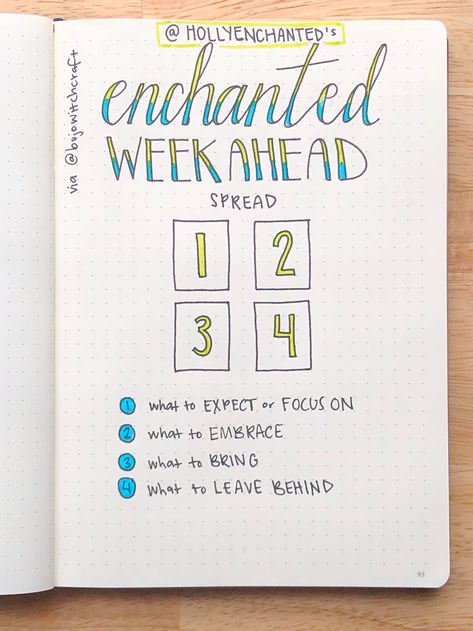 @ HOLLYENCHANTED's
via @bujowitchcraft
enchanted
WEEK AHEAD
SPREAD
1 2
3 4
1 what to EXPECT or FOCUS ON
2 what to EMBRACE
3 what to BRING
4 what to LEAVE BEHIND
95